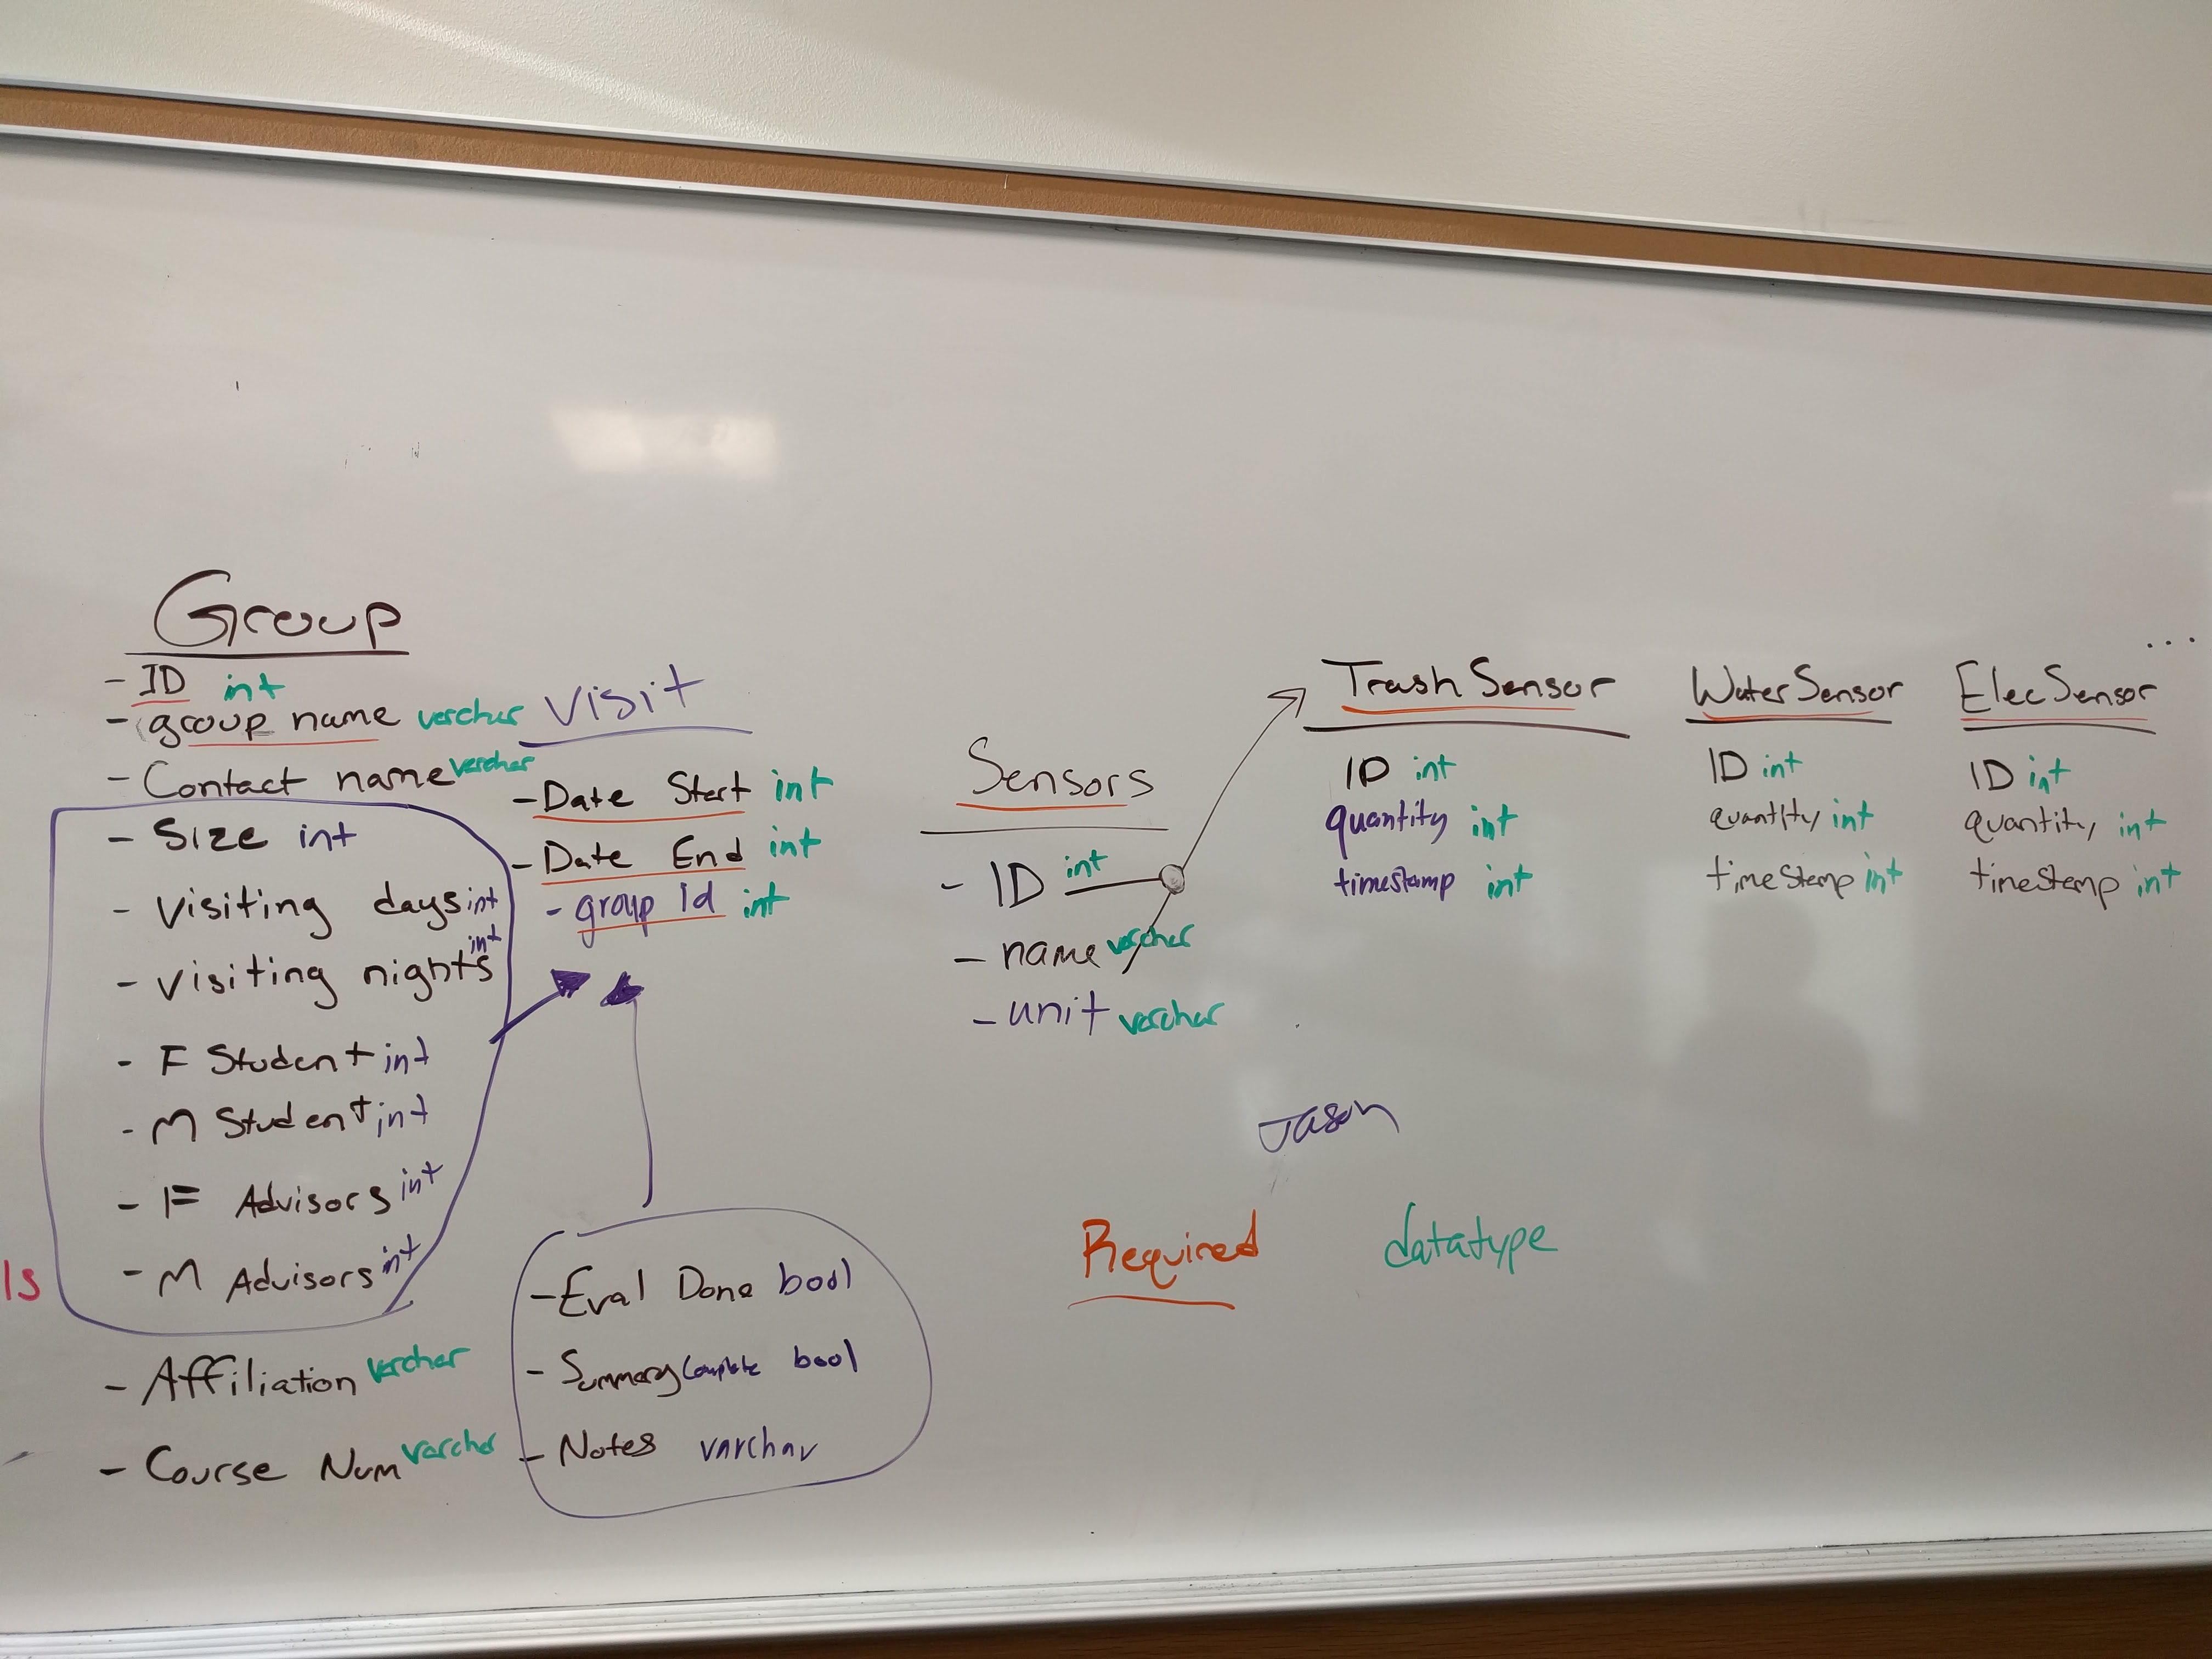 Group
- ID int
- group name varchar
- Contact name varchar
- Size int
- Visiting days int
- Visiting nights int
- F Student int
- M Student int
- F Advisors int
- M Advisors int
- Affiliation varchar
- Course Num varchar
ls
Visit
- Date Start int
- Date End int
- group Id int
- Eval Done bool
- Summary Complete bool
- Notes varchar
Sensors
- ID int
- name varchar
- unit varchar
Trash Sensor
ID int
quantity int
timestamp int
Water Sensor
ID int
quantity int
timeStamp int
Elec Sensor
ID int
quantity int
timeStamp int
...
Jason
Required
datatype